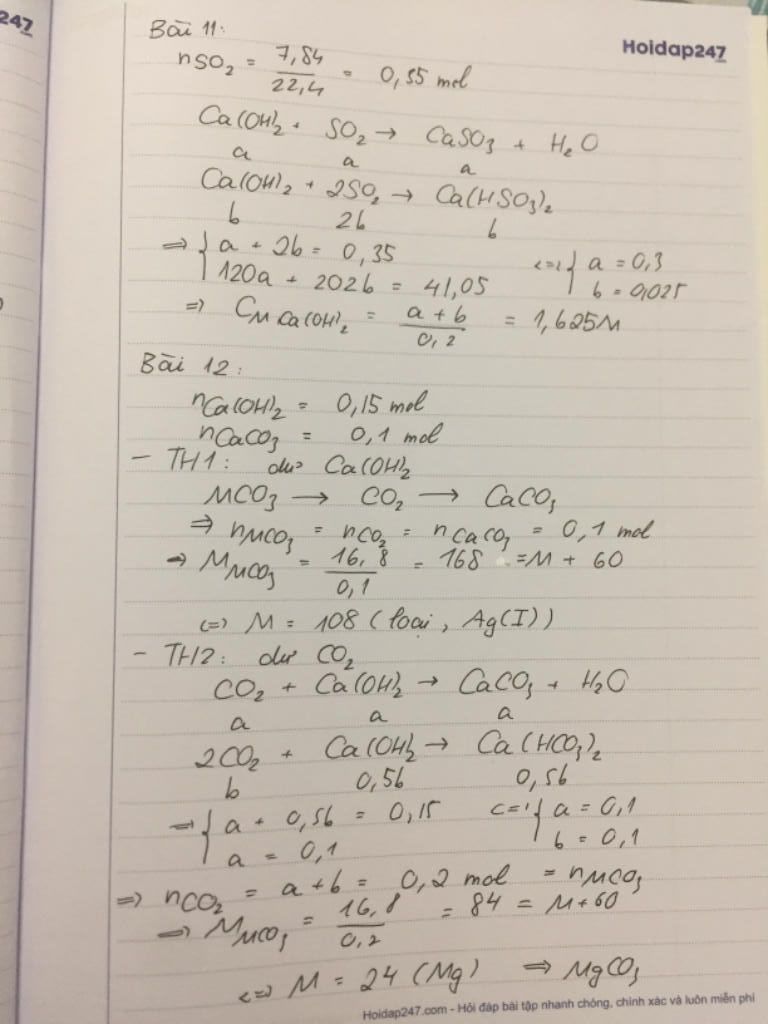 247
Hoidap247
Bài 11:
nSO₂ = 7,84/22,4 = 0,35 mol
Ca(OH)₂ + SO₂ → CaSO₃ + H₂O
a a a
Ca(OH)₂ + 2SO₂ → Ca(HSO₃)₂
b 2b b
=> { a + 2b = 0,35 <=> { a = 0,3
120a + 202b = 41,05 b = 0,025
=> CM Ca(OH)₂ = a + b/0,2 = 1,625M
Bài 12:
nCa(OH)₂ = 0,15 mol
nCaCO₃ = 0,1 mol
- TH1: dư Ca(OH)₂
MCO₃ → CO₂ → CaCO₃
=> nMCO₃ = nCO₂ = nCaCO₃ = 0,1 mol
=> MMCO₃ = 16,8/0,1 = 168 = M + 60
<=> M = 108 (loại, Ag(I))
- TH2: dư CO₂
CO₂ + Ca(OH)₂ → CaCO₃ + H₂O
a a a
2CO₂ + Ca(OH)₂ → Ca(HCO₃)₂
b 0,5b 0,5b
=> { a + 0,5b = 0,15 <=> { a = 0,1
a = 0,1 b = 0,1
=> nCO₂ = a + b = 0,2 mol = nMCO₃
=> MMCO₃ = 16,8/0,2 = 84 = M + 60
<=> M = 24 (Mg) => MgCO₃
Hoidap247.com - Hỏi đáp bài tập nhanh chóng, chính xác và luôn miễn phí